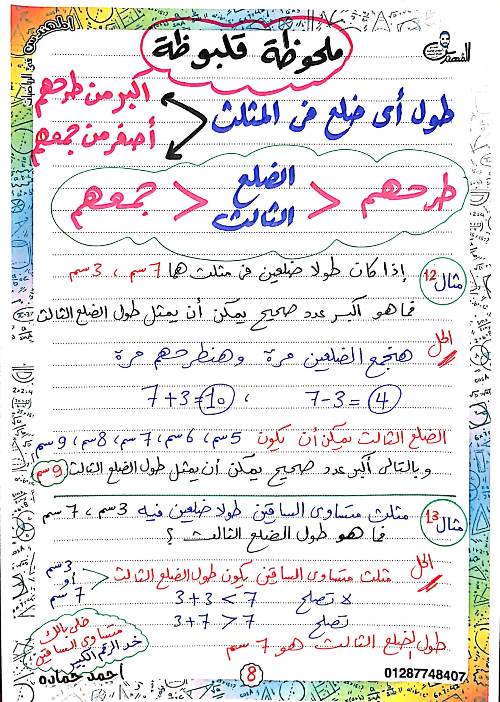 المهندس في الرياضيات
المهندس
ملحوظة قلبوظة
طول أى ضلع فى المثلث
أكبر من طرحهم
أصغر من جمعهم
طرحهم < الضلع الثالث < جمعهم
مثال 12
إذا كان طولا ضلعين فى مثلث هما 7 سم ، 3 سم
فما هو أكبر عدد صحيح يمكن أن يمثل طول الضلع الثالث
الحل
هنجمع الضلعين مرة وهنطرحهم مرة
7+3=10 ، 7-3=4
الضلع الثالث يمكن أن يكون 5سم ، 6سم ، 7سم ، 8سم ، 9سم
وبالتالى أكبر عدد صحيح يمكن أن يمثل طول الضلع الثالث 9سم
مثال 13
مثلث متساوى الساقين طولا ضلعين فيه 3سم ، 7سم
فما هو طول الضلع الثالث ؟
الحل
مثلث متساوى الساقين يكون طول الضلع الثالث
3سم
أو
7سم
3+3 < 7 لا تصلح
3+7 > 7 تصلح
طول الضلع الثالث هو 7 سم
خلى بالك
متساوى الساقين
خد الرقم الكبير
أحمد حماده
8
01287748407